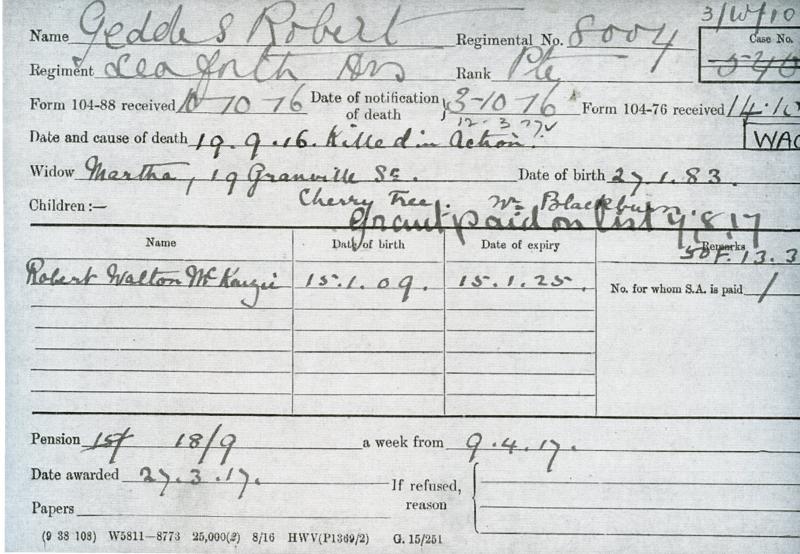 3/W/10
Name Geddes Robert Regimental No. 8004 Case No.
Regiment Seaforth Hrs Rank Pte
Form 104-88 received 10-10-16 Date of notification of death 3-10-16 Form 104-76 received 14.10
12.3.17
Date and cause of death 19.9.16. Killed in Action. WAO
Widow Martha, 19 Granville St. Date of birth 27.1.83.
Children:— Cherry Tree. Nr Blackburn
Grant paid on List 4.8.17
Name Date of birth Date of expiry Remarks
Robert Walton McKenzie 15.1.09. 15.1.25. No. for whom S.A. is paid 1
Pension 1st 18/9 a week from 9.4.17.
Date awarded 27.3.17. If refused, reason
Papers
(9 38 108) W5811—8773 25,000(2) 8/16 HWV(P1369/2) G. 15/251